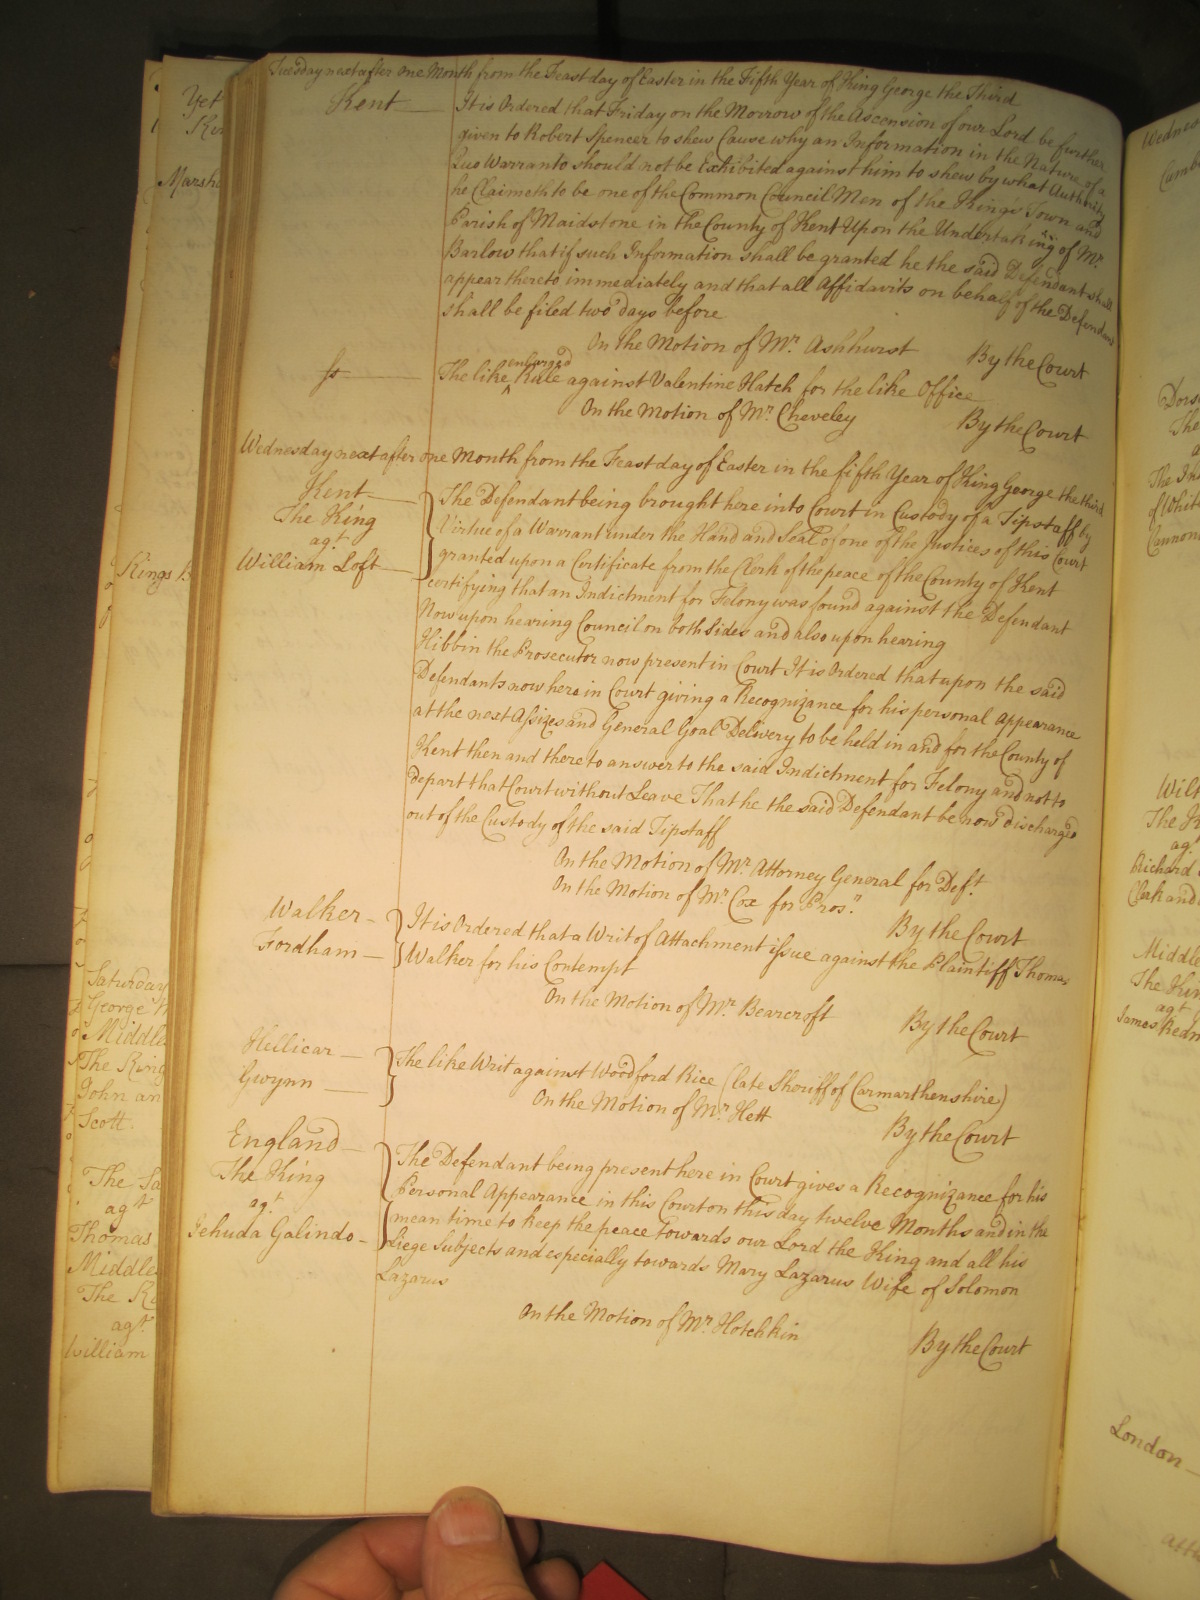 Tuesday next after one Month from the Feast day of Easter in the Fifth Year of King George the Third
Kent
It is Ordered that Friday on the Morrow of the Ascension of our Lord be further
given to Robert Spencer to shew Cause why an Information in the Nature of a
Quo Warranto should not be Exhibited against him to shew by what Authority
he Claimeth to be one of the Common Council Men of the King's Town and
Parish of Maidstone in the County of Kent Upon the Undertaking of Mr.
Barlow that if such Information shall be granted he the said Defendant shall
appear thereto immediately and that all Affidavits on behalf of the Defendant
shall be filed two days before
On the Motion of Mr. Ashhurst By the Court
enlarged
The like Rule against Valentine Hatch for the like Office
On the Motion of Mr. Cheveley By the Court
Wednesday next after one Month from the Feast day of Easter in the fifth Year of King George the third
Kent
The King
agt.
William Loft
The Defendant being brought here into Court in Custody of a Tipstaff by
Virtue of a Warrant under the Hand and Seal of one of the Justices of this Court
granted upon a Certificate from the Clerk of the peace of the County of Kent
certifying that an Indictment for Felony was found against the Defendant
Now upon hearing Council on both sides and also upon hearing
Hibbin the Prosecutor now present in Court It is Ordered that upon the said
Defendants now here in Court giving a Recognizance for his personal Appearance
at the next Assizes and General Goal Delivery to be held in and for the County of
Kent then and there to answer to the said Indictment for Felony and not to
depart that Court without Leave That he the said Defendant be now discharged
out of the Custody of the said Tipstaff
On the Motion of Mr. Attorney General for Deft.
On the Motion of Mr. Cox for Pros.r
By the Court
Walker
Fordham
It is Ordered that a Writ of Attachment issue against the Plaintiff Thomas
Walker for his Contempt
On the Motion of Mr. Bearcroft By the Court
Hellicar
Gwynn
The like Writ against Woodford Rice (late Sheriff of Carmarthenshire)
On the Motion of Mr. Hett
By the Court
England
The King
agt.
Jehuda Galindo
The Defendant being present here in Court gives a Recognizance for his
Personal Appearance in this Court on this day twelve Months and in the
mean time to keep the peace towards our Lord the King and all his
Liege Subjects and especially towards Mary Lazarus Wife of Solomon
Lazarus
On the Motion of Mr. Hotchkin
By the Court
Yet
Marsh
Kings B
Saturday
George
Middle
The King
John an
Scott
The
agt.
Thomas
Middle
The
agt.
William
Wednes
Cumb
Dors
The
of White
Cannon
Wilt
The K
agt.
Richard
Clark and
Middle
The Kin
agt.
James Redn
London